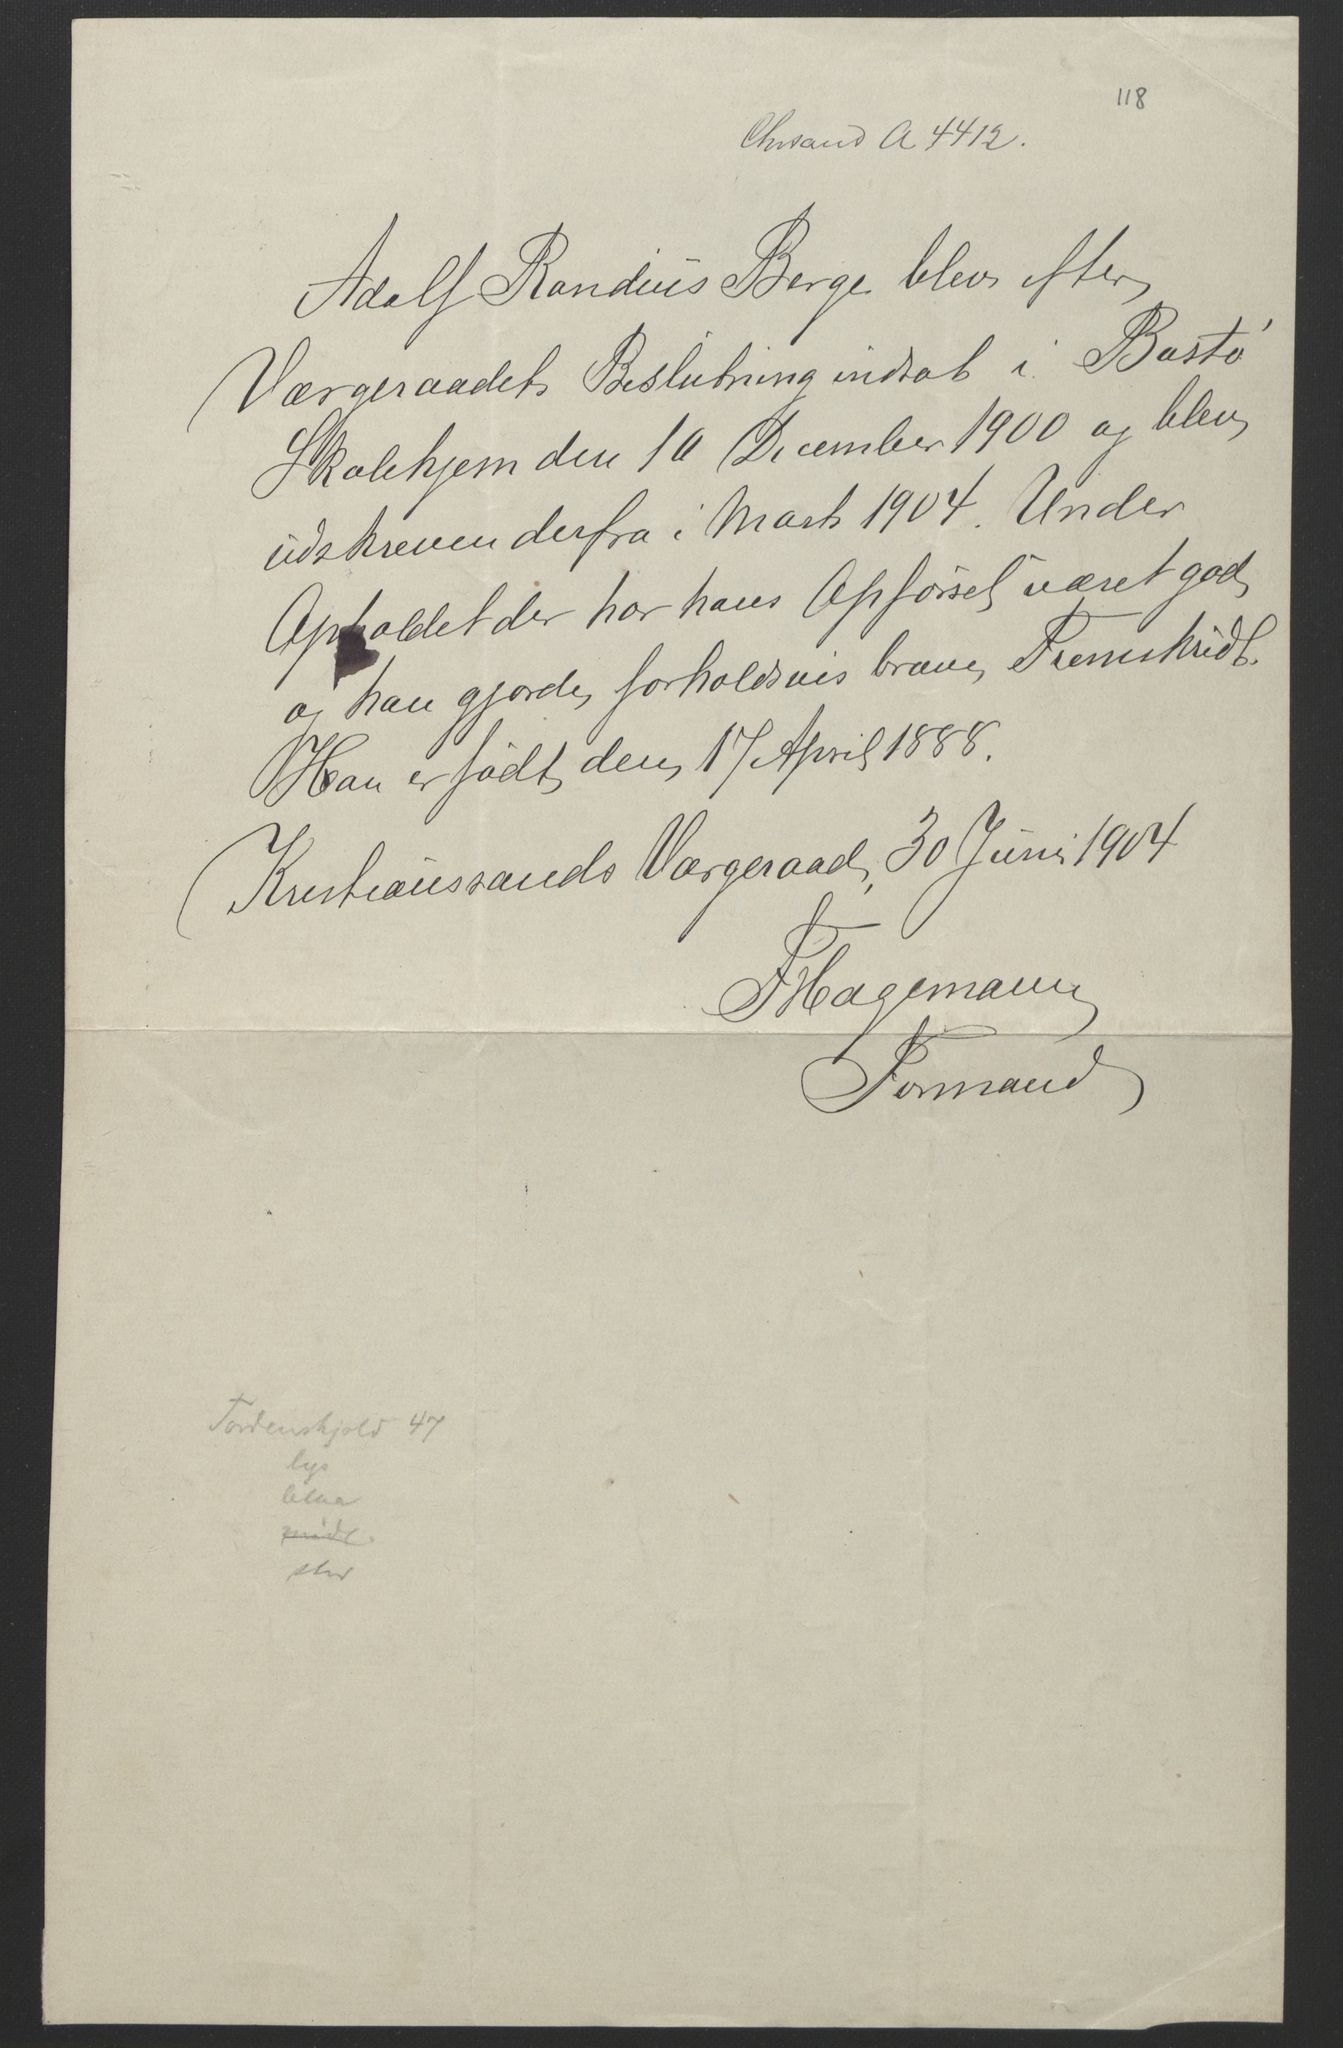 118
Chrsand A 4412.
Adolf Randius Berge blev efter
Værgeraadets Beslutning indsat i Bastø
Skolehjem den 10 December 1900 og blev
udskreven derfra i Marts 1904. Under
Opholdet der har hans Opførsel været god
og han gjorde forholdsvis brave Fremskridt.
Han er født den 17 April 1888.
Kristianssands Værgeraad, 30 Juni 1904
F Hagemann
Formand
Tordenskjold 47
lys
blaa
midl.
stor